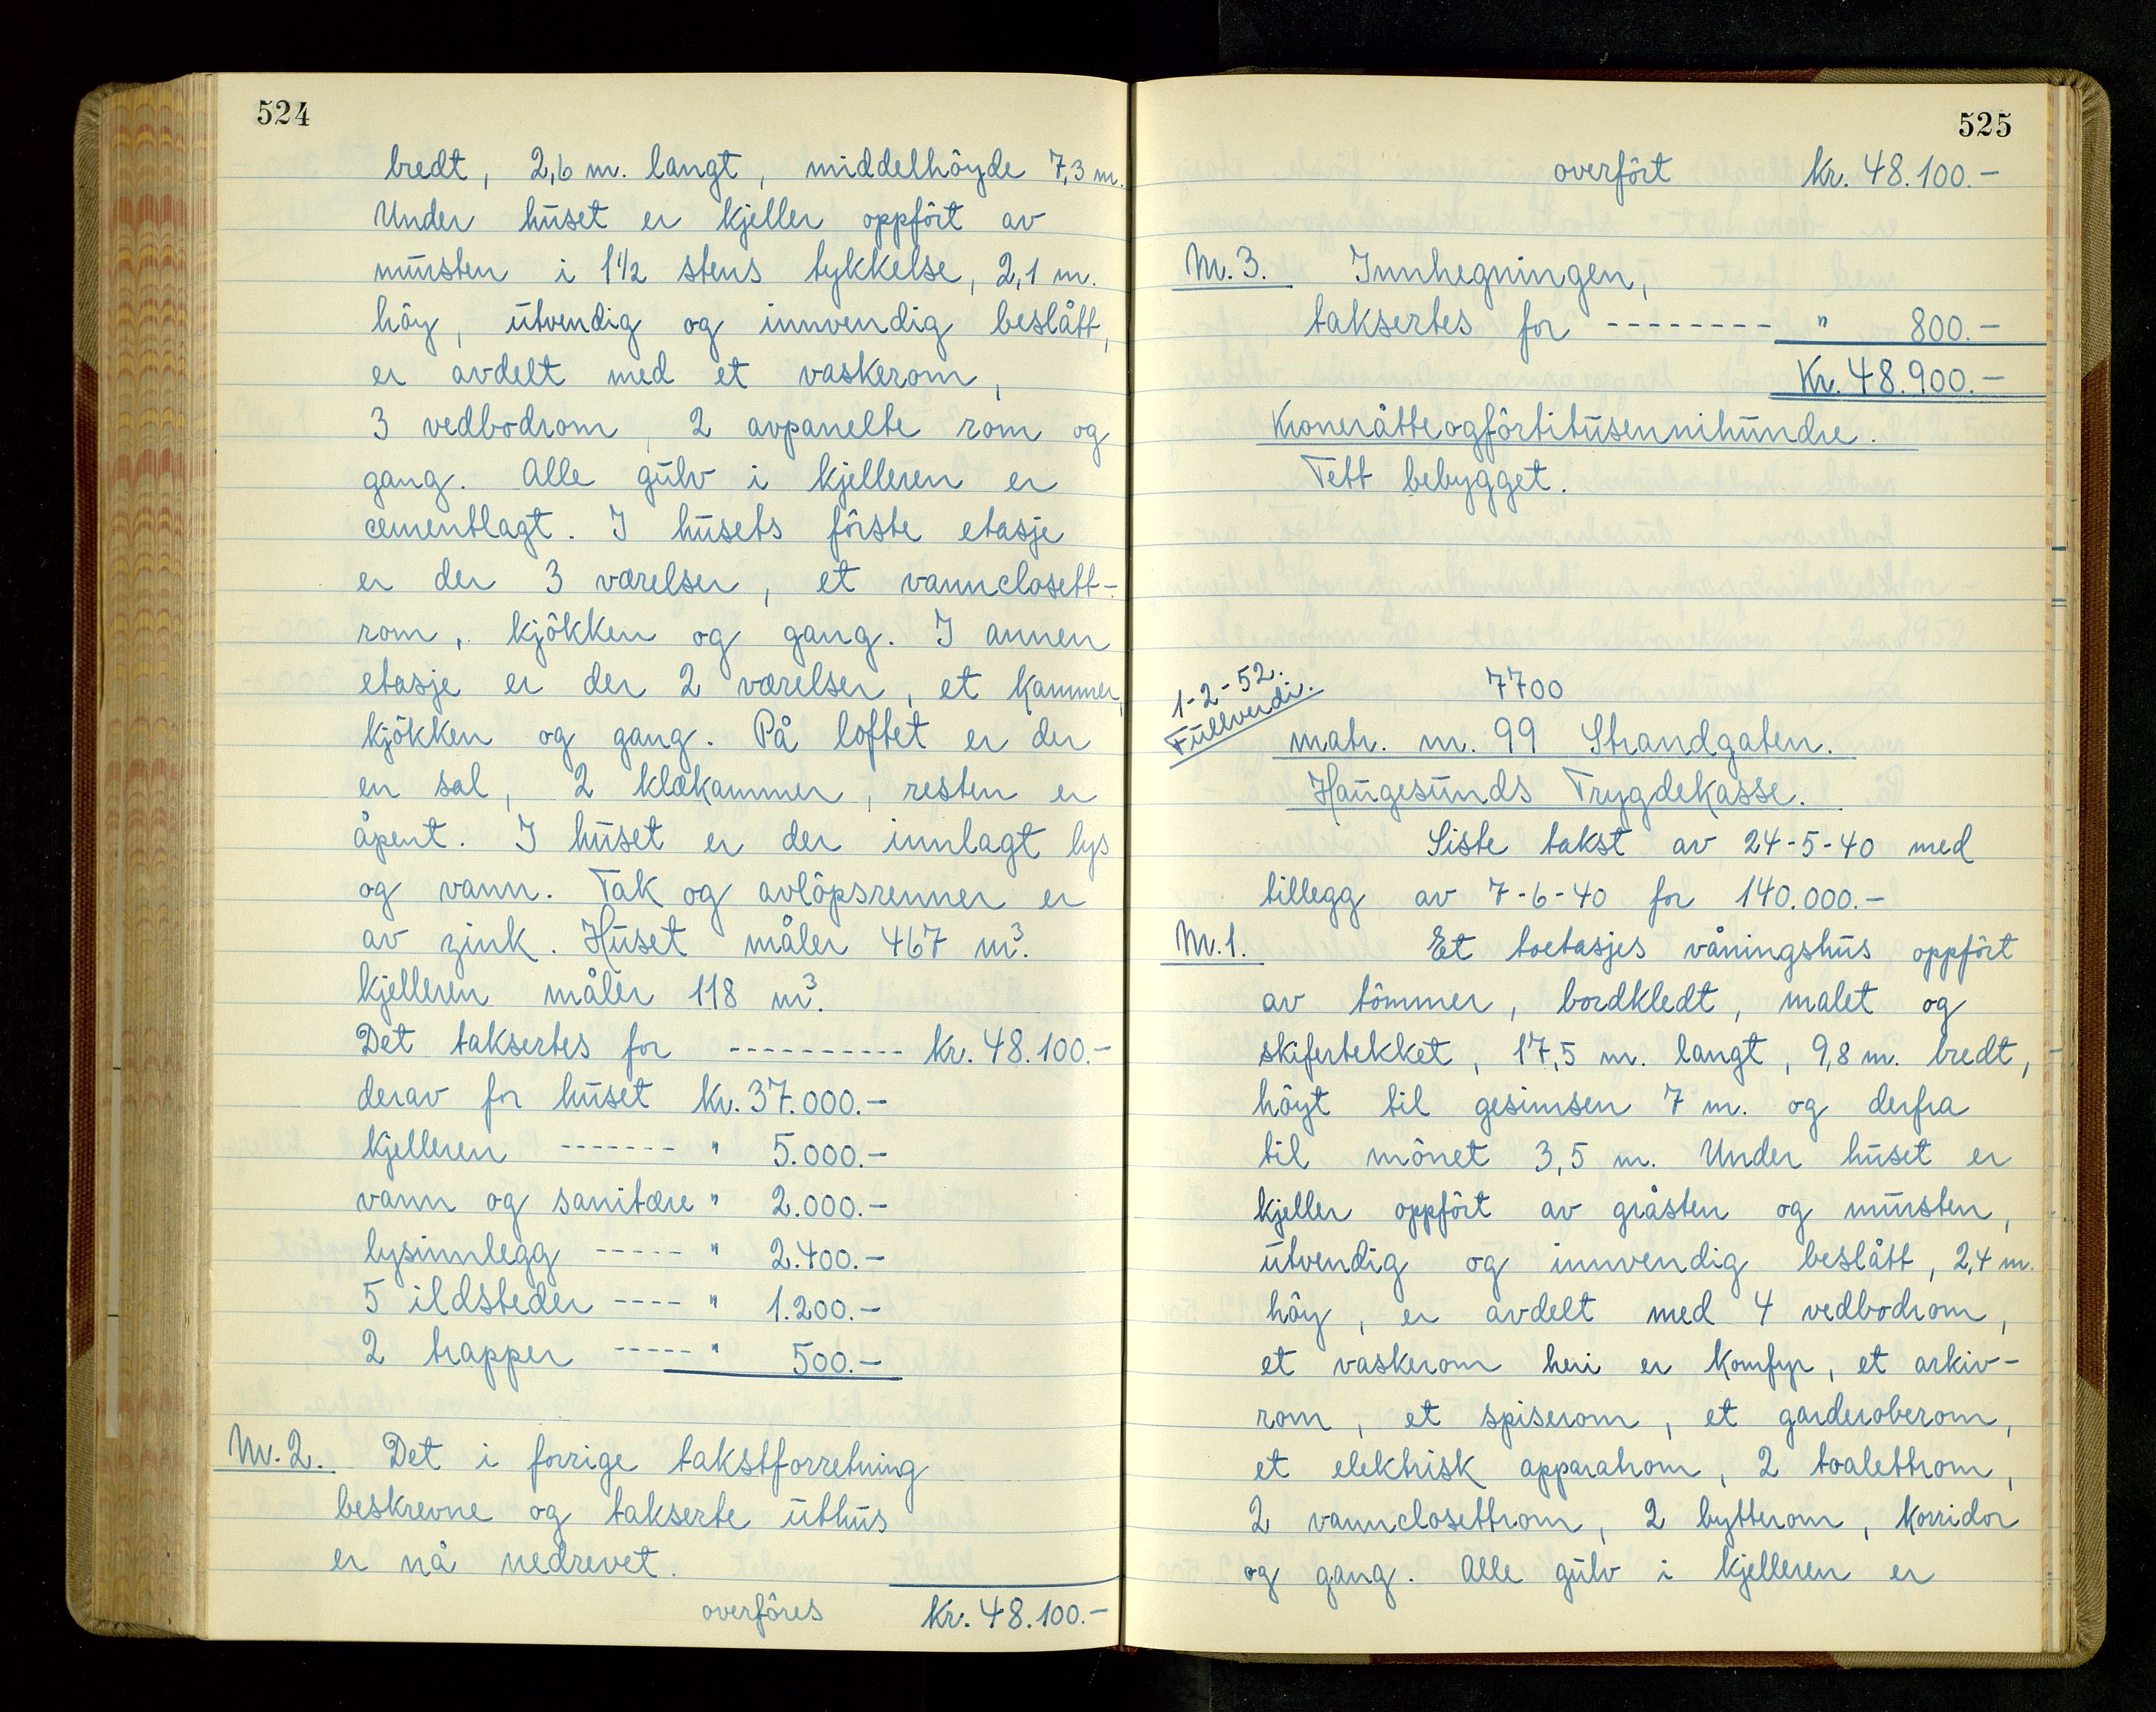 524
bredt, 2,6 m. langt, middelhöyde 7,3 m.
Under huset er kjeller oppfört av
mursten i 1½ stens tykkelse, 2,1 m.
höy, utvendig og innvendig beslått,
er avdelt med et vaskerom,
3 vedbodrom, 2 avpanelte rom og
gang. Alle gulv i kjelleren er
cementlagt. I husets förste etasje
er der 3 værelser, et vannclosett-
rom, kjökken og gang. I annen
etasje er der 2 værelser, et kammer,
kjökken og gang. På loftet er der
en sal, 2 klækammer, resten er
åpent. I huset er der innlagt lys
og vann. Tak og avlöpsrenner er
av zink. Huset måler 467 m³.
Kjelleren måler 118 m³.
Det taksertes for ---------- kr. 48.100.-
derav for huset kr. 37.000.-
kjelleren ------- " 5.000.-
vann og sanitære " 2.000.-
lysinnlegg ----- " 2.400.-
5 ildsteder ---- " 1.200.-
2 trapper ----- " 500.-
Nr. 2. Det i forrige takstforretning
beskrevne og takserte uthus
er nå nedrevet.
overföres kr. 48.100.-
525
overfört kr. 48.100.-
Nr. 3. Innhegningen,
taksertes for -------- " 800.-
Kr. 48.900.-
Kroneråtteogförtitusennihundre.
Tett bebygget.
1-2-52.
Fullverdi.
7700
matr. nr. 99 Strandgaten.
Haugesunds Trygdekasse.
Siste takst av 24-5-40 med
tillegg av 7-6-40 for 140.000.-
Nr. 1. Et toetasjes våningshus oppfört
av tömmer, bordkledt, malet og
skifertekket, 17,5 m. langt, 9,8 m. bredt,
höyt til gesimsen 7 m. og derfra
til mönet 3,5 m. Under huset er
kjeller oppfört av gråsten og mursten,
utvendig og innvendig beslått, 2,4 m.
höy, er avdelt med 4 vedbodrom,
et vaskerom heri er komfyr, et arkiv-
rom, et spiserom, et garderoberom,
et elektrisk apparatrom, 2 toalettrom,
2 vannclosettrom, 2 bytterom, korridor
og gang. Alle gulv i kjelleren er